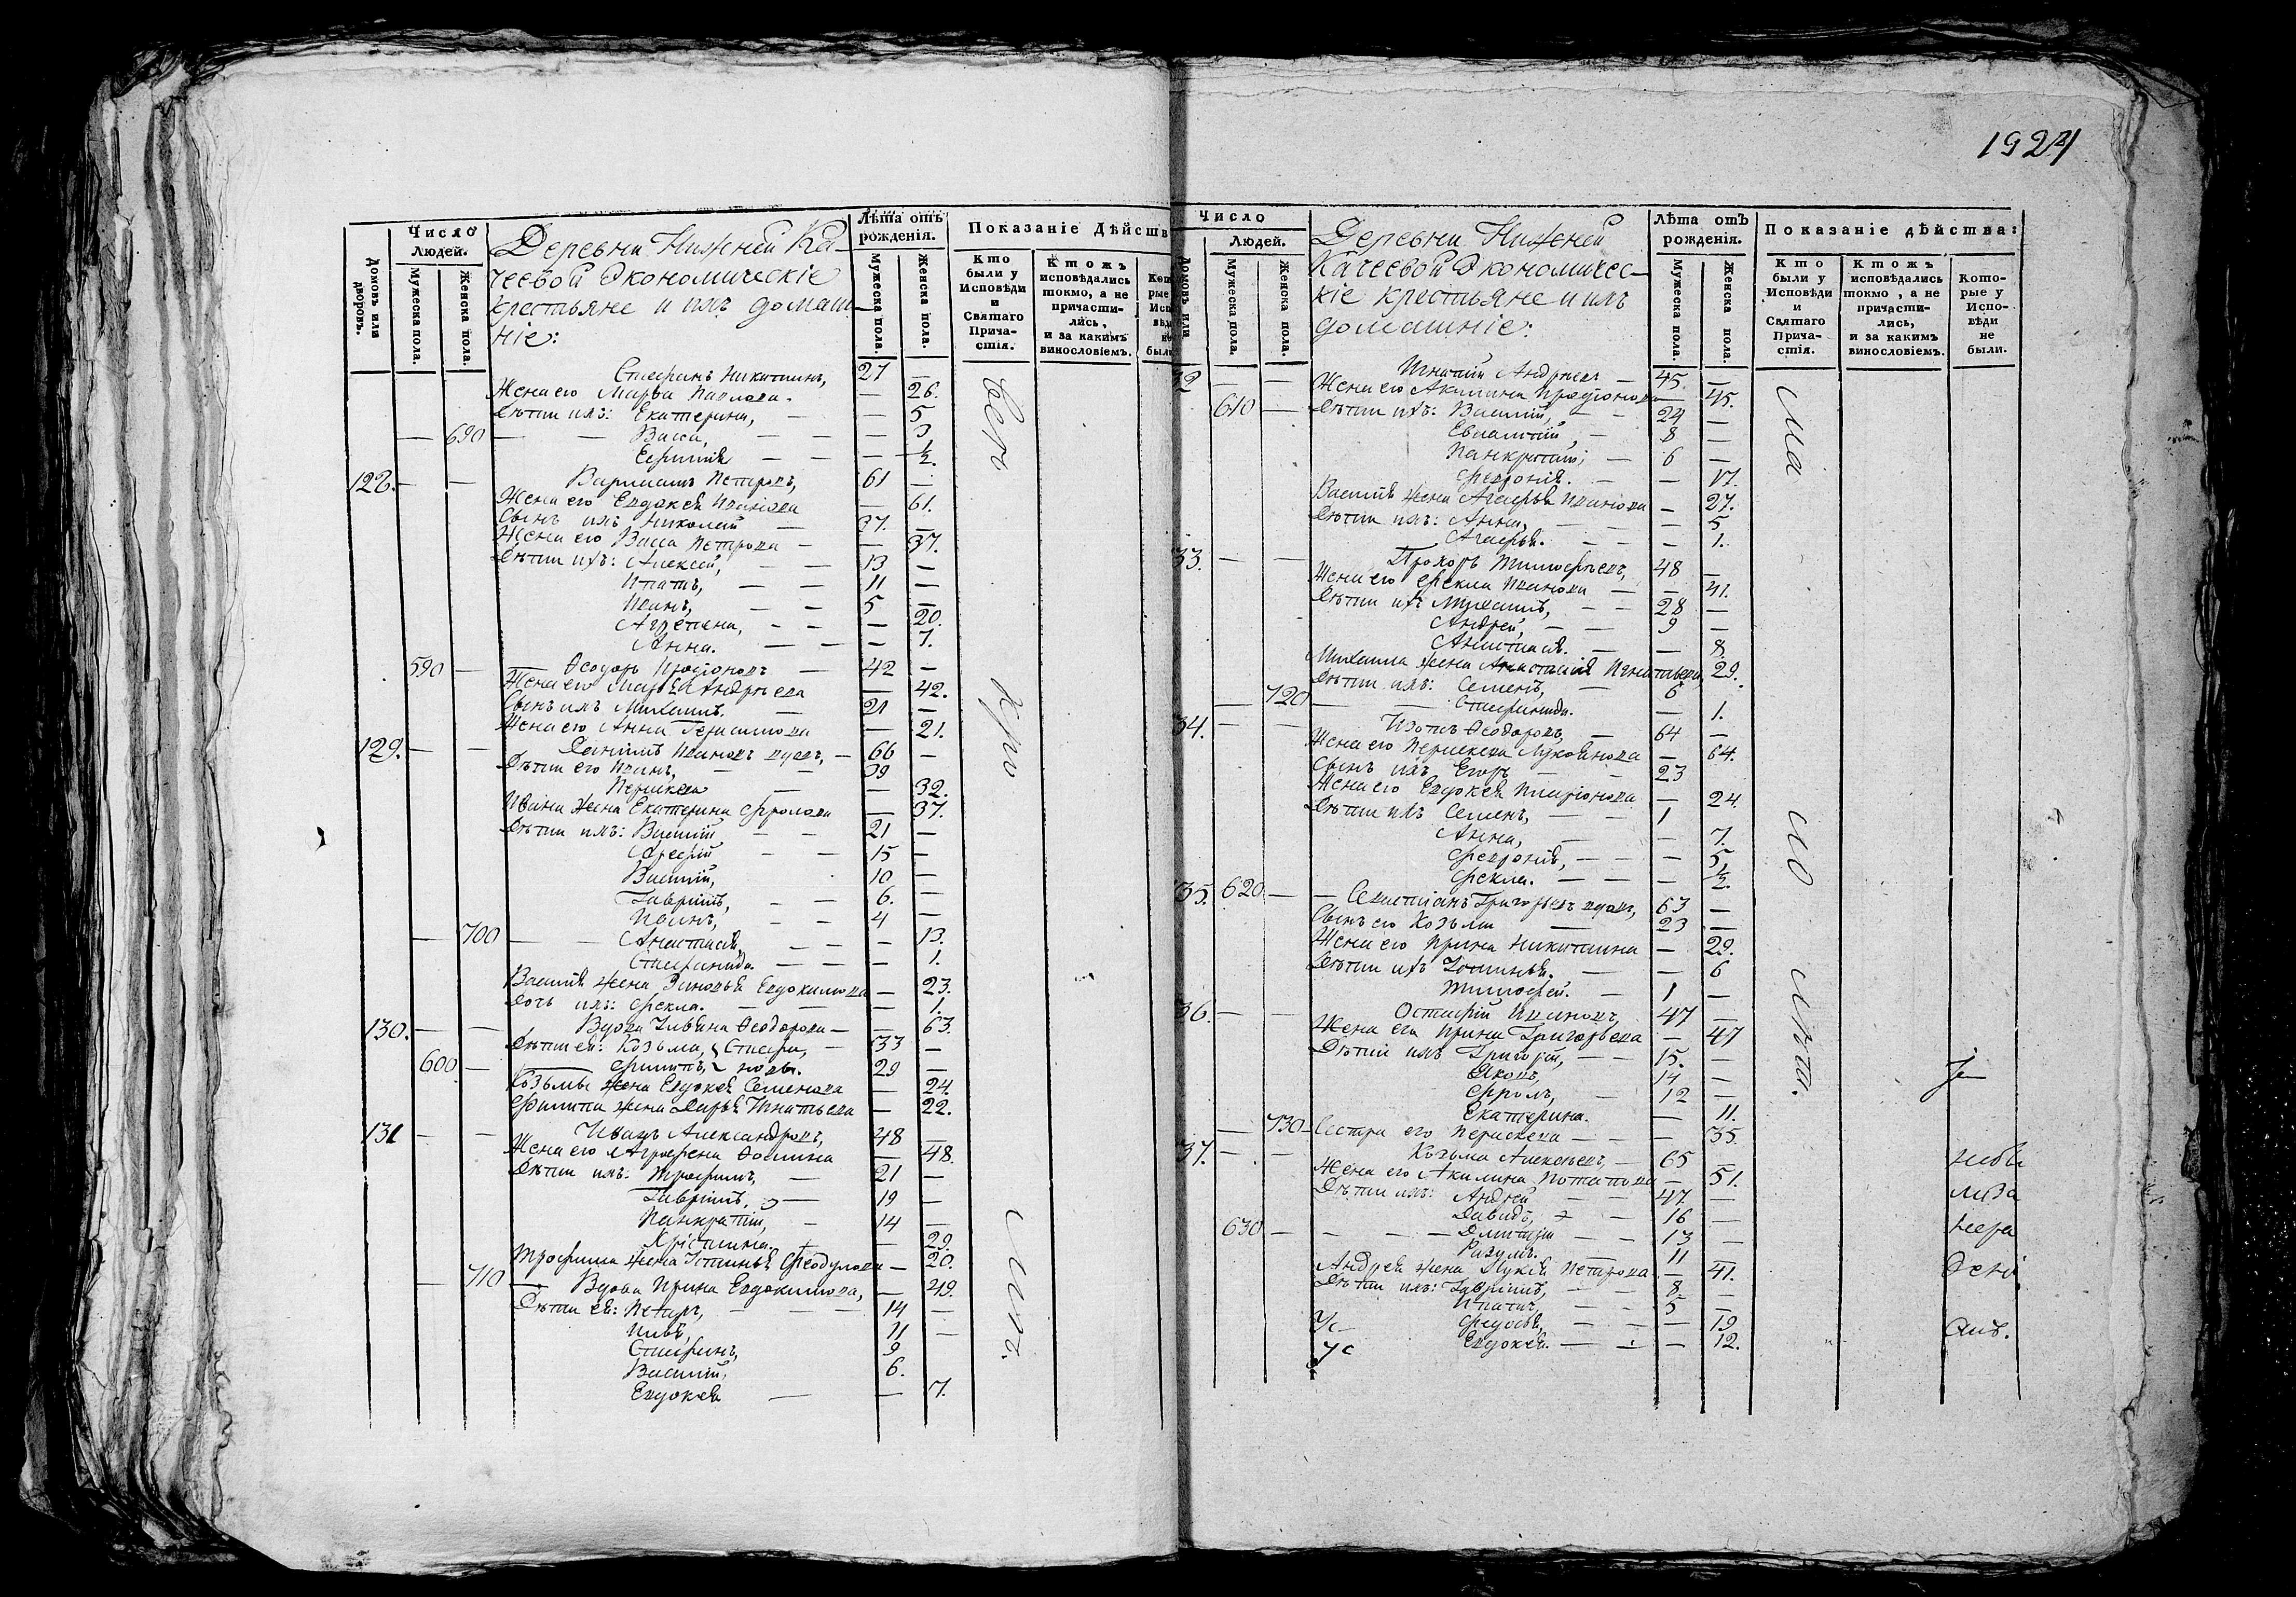 1924
Домовъ или дворовъ.
Число Людей.
Мужеска пола.
Женска пола.
Деревни Нижней Ка-
чеевой Экономическіе
крестьяне и ихъ домаш-
ніе:
Лѣта отъ рожденія.
Мужеска пола.
Женска пола.
Показаніе Дѣйств
Кто были у Исповѣди и Святаго Прича-стія.
Ктожъ исповѣдались токмо, а не причасти-лись, и за какимъ винословіемъ.
Стефанъ Никитинъ, 27 —
Жена его Марѳа Павлова. — 26.
Дѣти ихъ: Екатерина, — — 5
— 690 — — Васса, — — — 3
Евфимія — — — ½.
128. — — Варлаамъ Петровъ, 61 —
Жена его Евдокея Иванова — 61.
Сынъ ихъ Николай — 37. —
Жена его Васса Петрова — — 37.
Дѣти ихъ: Алексей, — — 13 —
Ипатъ, — — 11 —
Иванъ, — — 5 —
Агрепена, — — — 20.
Анна. — — — 7.
590 — — Ѳеодоръ Иродіоновъ — 42 —
Жена его Марѳа Андреева — 42.
Сынъ ихъ Михаилъ. — 21 —
Жена его Анна Герасимова — 21.
129. — — Даніилъ Ивановъ вдовъ, — 66 —
Дѣти его Иванъ, — — 39
Параскева — — 32.
Ивана жена Екатерина Фролова — 37.
Дѣти ихъ: Василій — — 21 —
Арефій — — 15 —
Василій, 10 —
Гавріилъ, — — 6. —
Иванъ, — — 4 —
— 700 — — Анастасія, — — — 13.
Стефанида. — — — 1.
Василія жена Зиновья Евдокимова — 23.
Дочь ихъ: Фекла. — — — 1.
130. — — Вдова Ульяна Ѳеодорова — — 63.
Дѣти ея: Козьма, } Стефа, — 33 —
600 — — Филипъ, } новы. 29 —
Козьмы жена Евдокея Семенова — 24.
Филипа жена Дарья Игнатьева — 22.
131 — — Иванъ Александровъ, 48 —
Жена его Агрофена Фомина — 48.
Дѣти ихъ: Трофимъ, — 21 —
Гавріилъ, — 19 —
Панкратій, — 14 —
Христина. — — 29.
Трофима жена Устинья Феодулова — 20.
— 710 — Вдова Ирина Евдокимова, — 49.
Дѣти ея: Петръ, — — — 14 —
11 —
Стефанъ, 9
Василій, 6.
Евдокея — — 7.
Число Людей.
Мужеска пола.
Женска пола.
Деревни Нижней
Качеевой Экономичес-
кіе крестьяне и ихъ
домашніе:
Лѣта отъ рожденія.
Мужеска пола.
Женска пола.
Показаніе дѣйства:
Кто были у Исповѣди и Святаго Прича-стія.
Ктожъ исповѣдались токмо, а не причасти-лись, и за какимъ винословіемъ.
Кото-рые у Испо-вѣди не были.
32 — — Игнатій Андреевъ — 45. —
Жена его Акилина Иродіонова — 45.
610 — Дѣти ихъ: Василій, — — 24 —
Евлампій, — 8 —
Панкратій; — 6 —
Февронія. — — 17.
Василія жена Агафья Иванова — 27.
Дѣти ихъ: Анна, — — — 5
Агафья. — — — 1.
33. — — Прохоръ Тимофеевъ, 48 —
Жена его Фекла Иванова — — 41.
Дѣти ихъ Михаилъ, — — 28 —
Андрей, — — 9 —
Анастасія. — — 8
Михаила жена Анастасія Игнатьева, 29.
Дѣти ихъ: Семенъ, — 6 —
— 720 — — Стефанида. — 1.
34. — — Изотъ Ѳеодоровъ, — 64 —
Жена его Параскева Лукоянова — 64.
Сынъ ихъ Егоръ — — 23
Жена его Евдокея Иларіонова — 24
Дѣти ихъ Семенъ, — — 1
Анна, — — 7.
Февронія, — — — 5,
Фекла. — — — ½.
35. 620 — — Севастіанъ Григорьевъ вдовъ, 63 —
Сынъ его Козьма — 23 —
Жена его Ирина Никитина — 29.
Дѣти ихъ Устинья. — — 6
Тимофей. — 1 —
36. — — Остафій Ивановъ, 47 —
Жена его Ирина Григорьева — 47
Дѣти ихъ Григорій, — — 15. —
Яковъ, 14 —
Фролъ, — 12 —
Екатерина. — 11.
— 730 — Сестра его Параскева — — — 35.
37. — — Козьма Алексеевъ, — 65 —
Жена его Акилина Потапова — 51.
Дѣти ихъ: Андрей — — 47. —
Давидъ, — — 16 —
630 — — — Дмитрій — — 13 —
11
Андрея жена Лукія Петрова — 41.
Дѣти ихъ: Гавріилъ, — — 8. —
Ипатъ, — — 5 —
Федосья, — — — 19
Евдокея. — — — 12.
небы